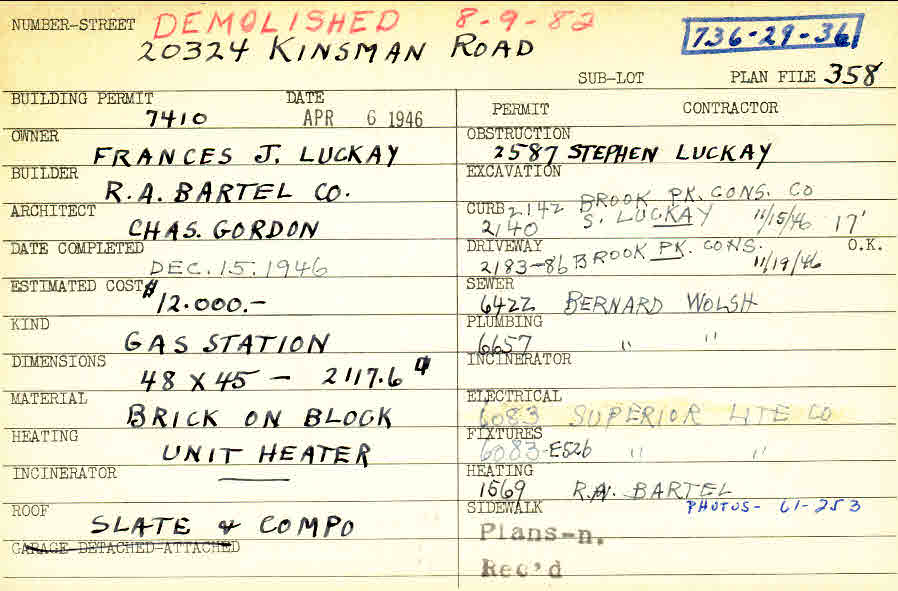 NUMBER-STREET DEMOLISHED 8-9-82
20324 KINSMAN ROAD
736-29-36
SUB-LOT PLAN FILE 358
BUILDING PERMIT DATE
7410 APR 6 1946
OWNER
FRANCES J. LUCKAY
BUILDER
R.A. BARTEL CO.
ARCHITECT
CHAS. GORDON
DATE COMPLETED
DEC. 15. 1946
ESTIMATED COST $
12.000.-
KIND
GAS STATION
DIMENSIONS
48 X 45 - 2117.6
MATERIAL
BRICK ON BLOCK
HEATING
UNIT HEATER
INCINERATOR
ROOF
SLATE & COMPO
GARAGE-DETACHED-ATTACHED
PERMIT CONTRACTOR
OBSTRUCTION
2587 STEPHEN LUCKAY
EXCAVATION
CURB 2142 BROOK PK. CONS. CO
2140 S. LUCKAY 11/15/46 17'
DRIVEWAY O.K.
2183-86 BROOK PK. CONS. 11/19/46
SEWER
6422 BERNARD WOLSH
PLUMBING
6657 " "
INCINERATOR
ELECTRICAL
6083 SUPERIOR LITE CO
FIXTURES
6083-E526 " "
HEATING
1569 R.A. BARTEL
SIDEWALK PHOTOS- 61-253
Plans-n.
Rec'd